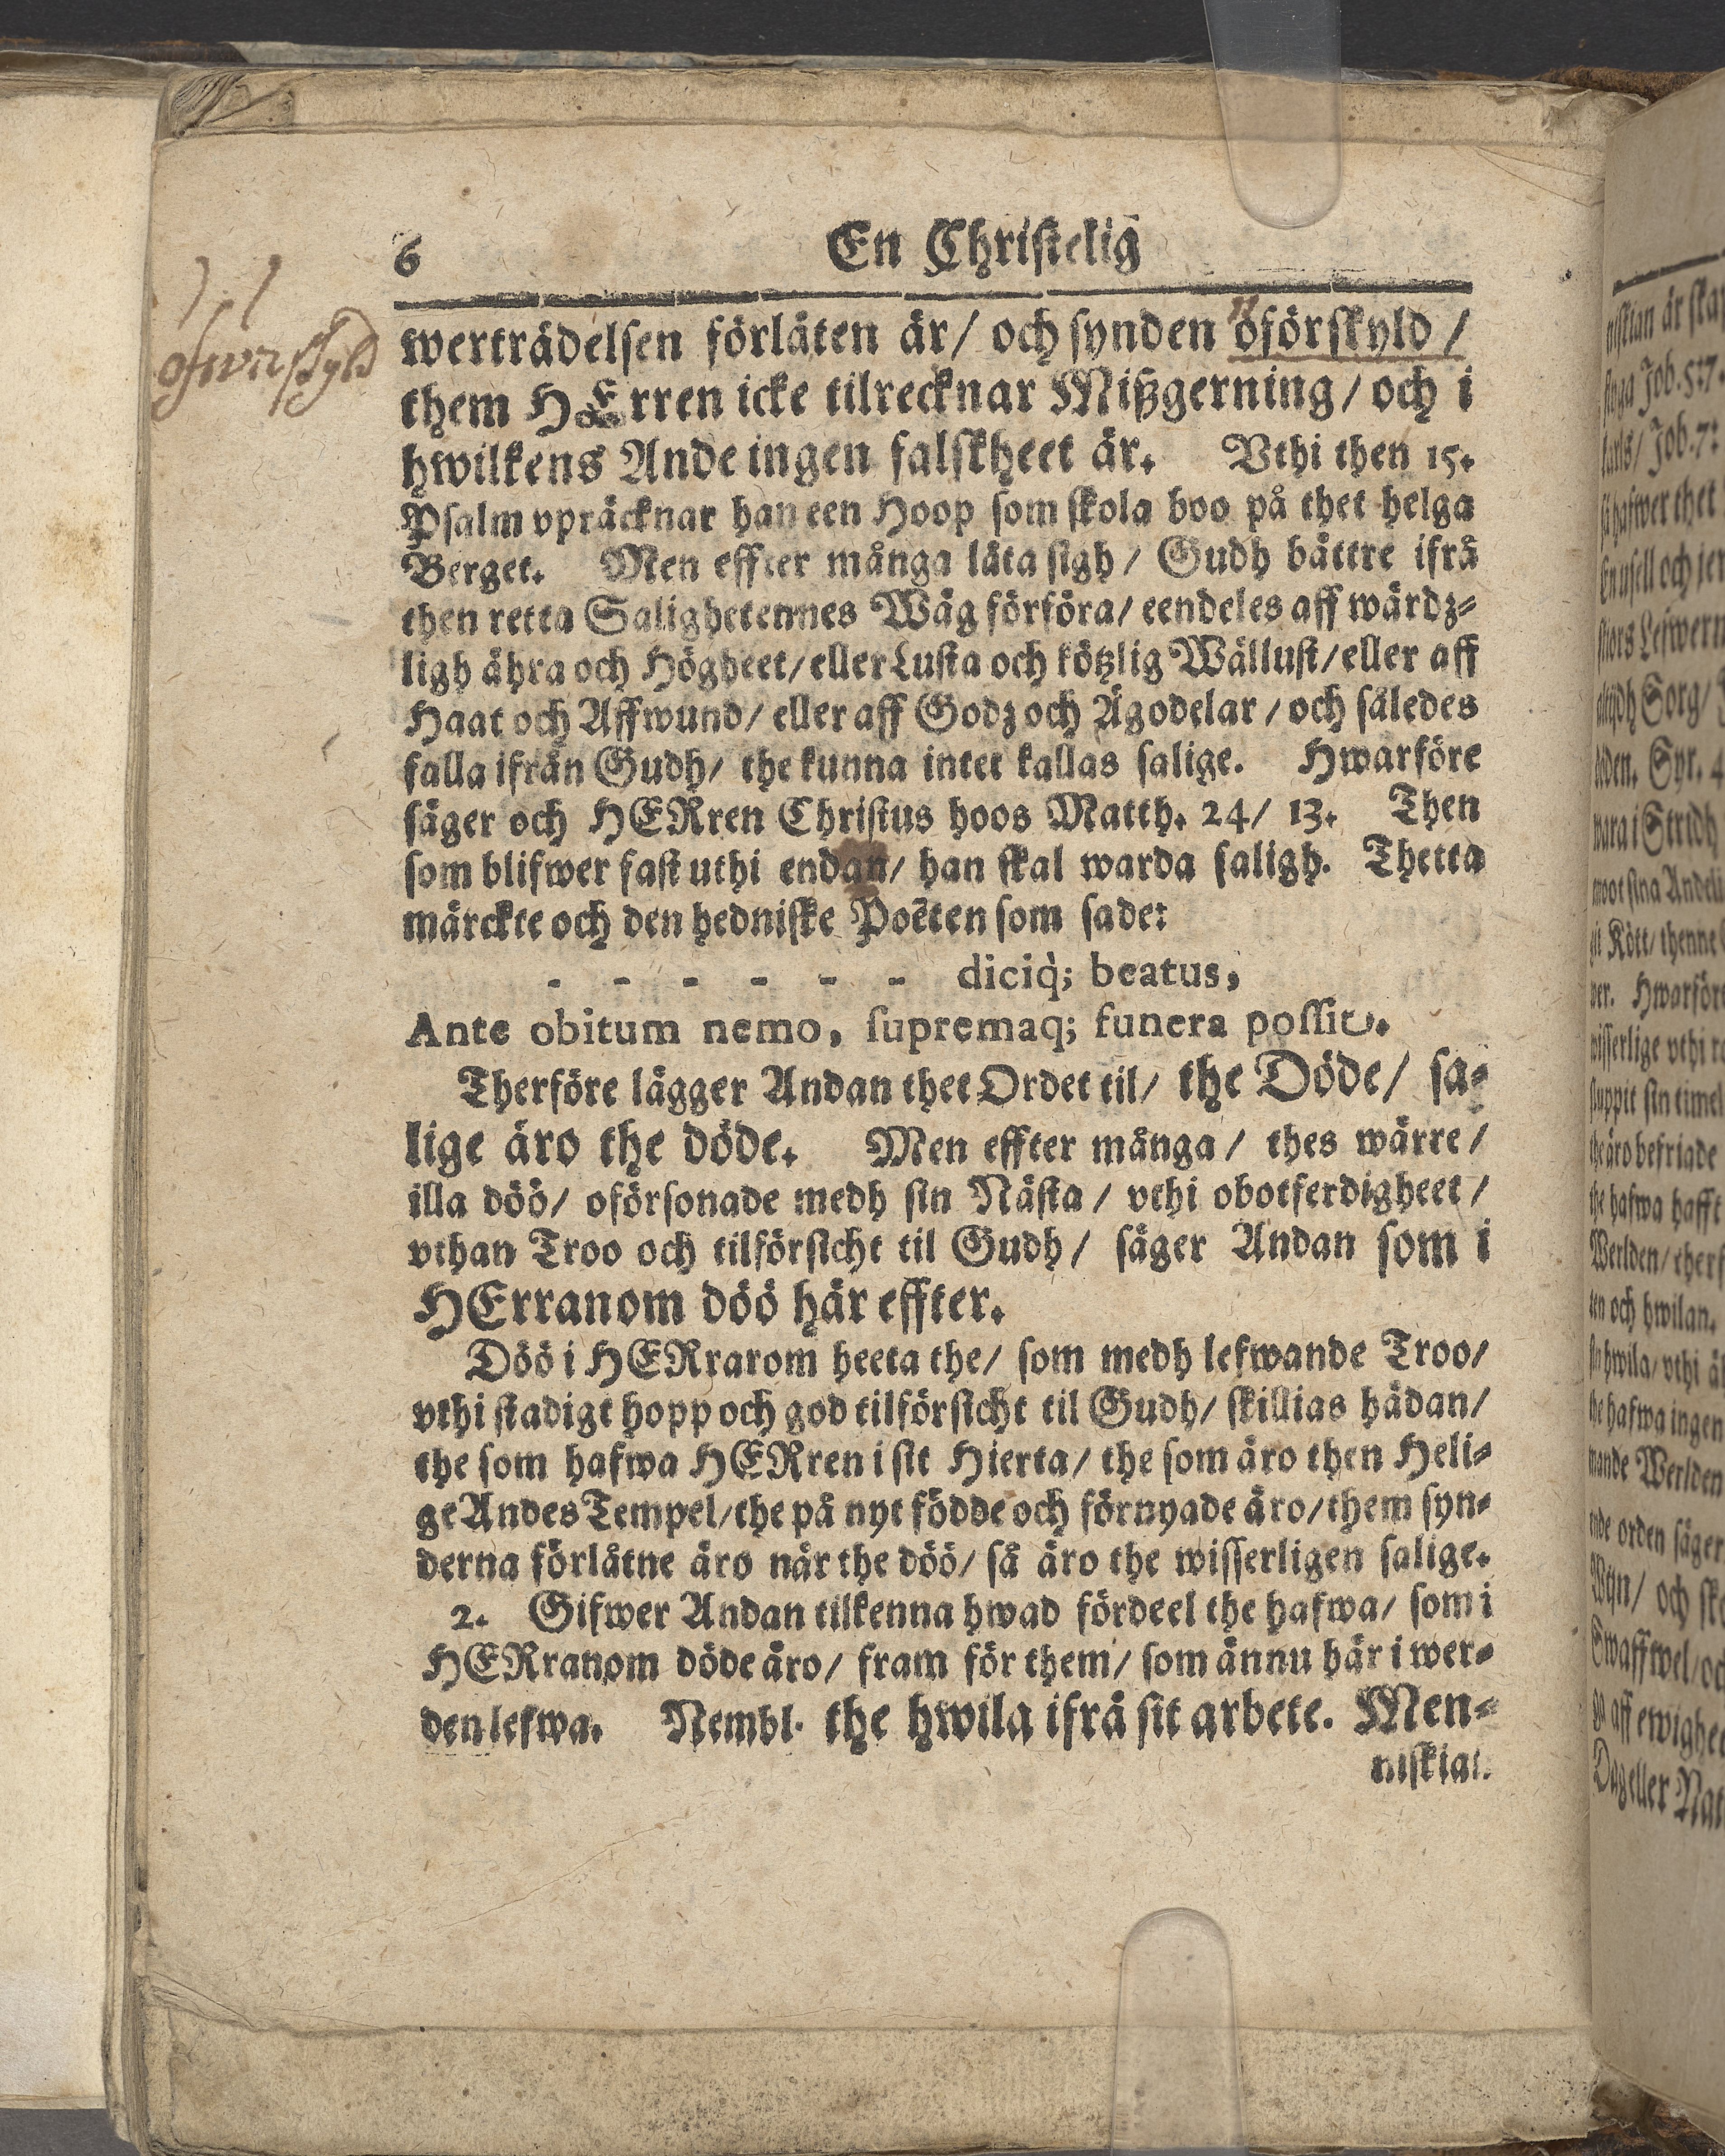 6 En Christelig
werträdelsen förlåten är/ och synden oförskyld/
ofwerskyld
them HErren icke tilrecknar Mißgerning/ och i
hwilkens Ande ingen falskheet är. Vthi then 15.
Psalm vpräcknar han een Hoop som skola boo på thet helga
Berget. Men effter många låta sigh/ Gudh bättre ifrå
then retta Salighetennes Wäg förföra/ eendeles aff wärdz-
ligh ähra och Högheet/ eller Lusta och kötzlig Wällust/ eller aff
Haat och Affwund/ eller aff Godz och Ägodelar/ och således
falla ifrån Gudh/ the kunna intet kallas salige. Hwarföre
säger och HERren Christus hoos Matth. 24/ 13. Then
som blifwer fast uthi endan/ han skal warda saligh. Thetta
märckte och den hedniske Poëten som sade:
- - - - - - diciq́; beatus,
Ante obitum nemo, supremaq; funera possit.
Therföre lägger Andan thet Ordet til/ the Döde/ sa-
lige äro the döde. Men effter många/ thes wärre/
illa döö/ oförsonade medh sin Nästa/ vthi obotferdigheet/
vthan Troo och tilförsicht til Gudh/ säger Andan som i
HErranom döö här effter.
Döö i HERrarom heeta the/ som medh lefwande Troo/
vthi stadigt hopp och god tilförsicht til Gudh/ skillias hädan/
the som hafwa HERren i sit Hierta/ the som äro then Heli-
ge Andes Tempel/ the på nyt födde och förnyade äro/ them syn-
derna förlåtne äro när the döö/ så äro the wisserligen salige.
2. Gifwer Andan tilkenna hwad fördeel the hafwa/ som i
HERranom döde äro/ fram för them/ som ännu här i wer-
den lefwa. Nembl. the hwila ifrå sit arbete. Men-
niskian